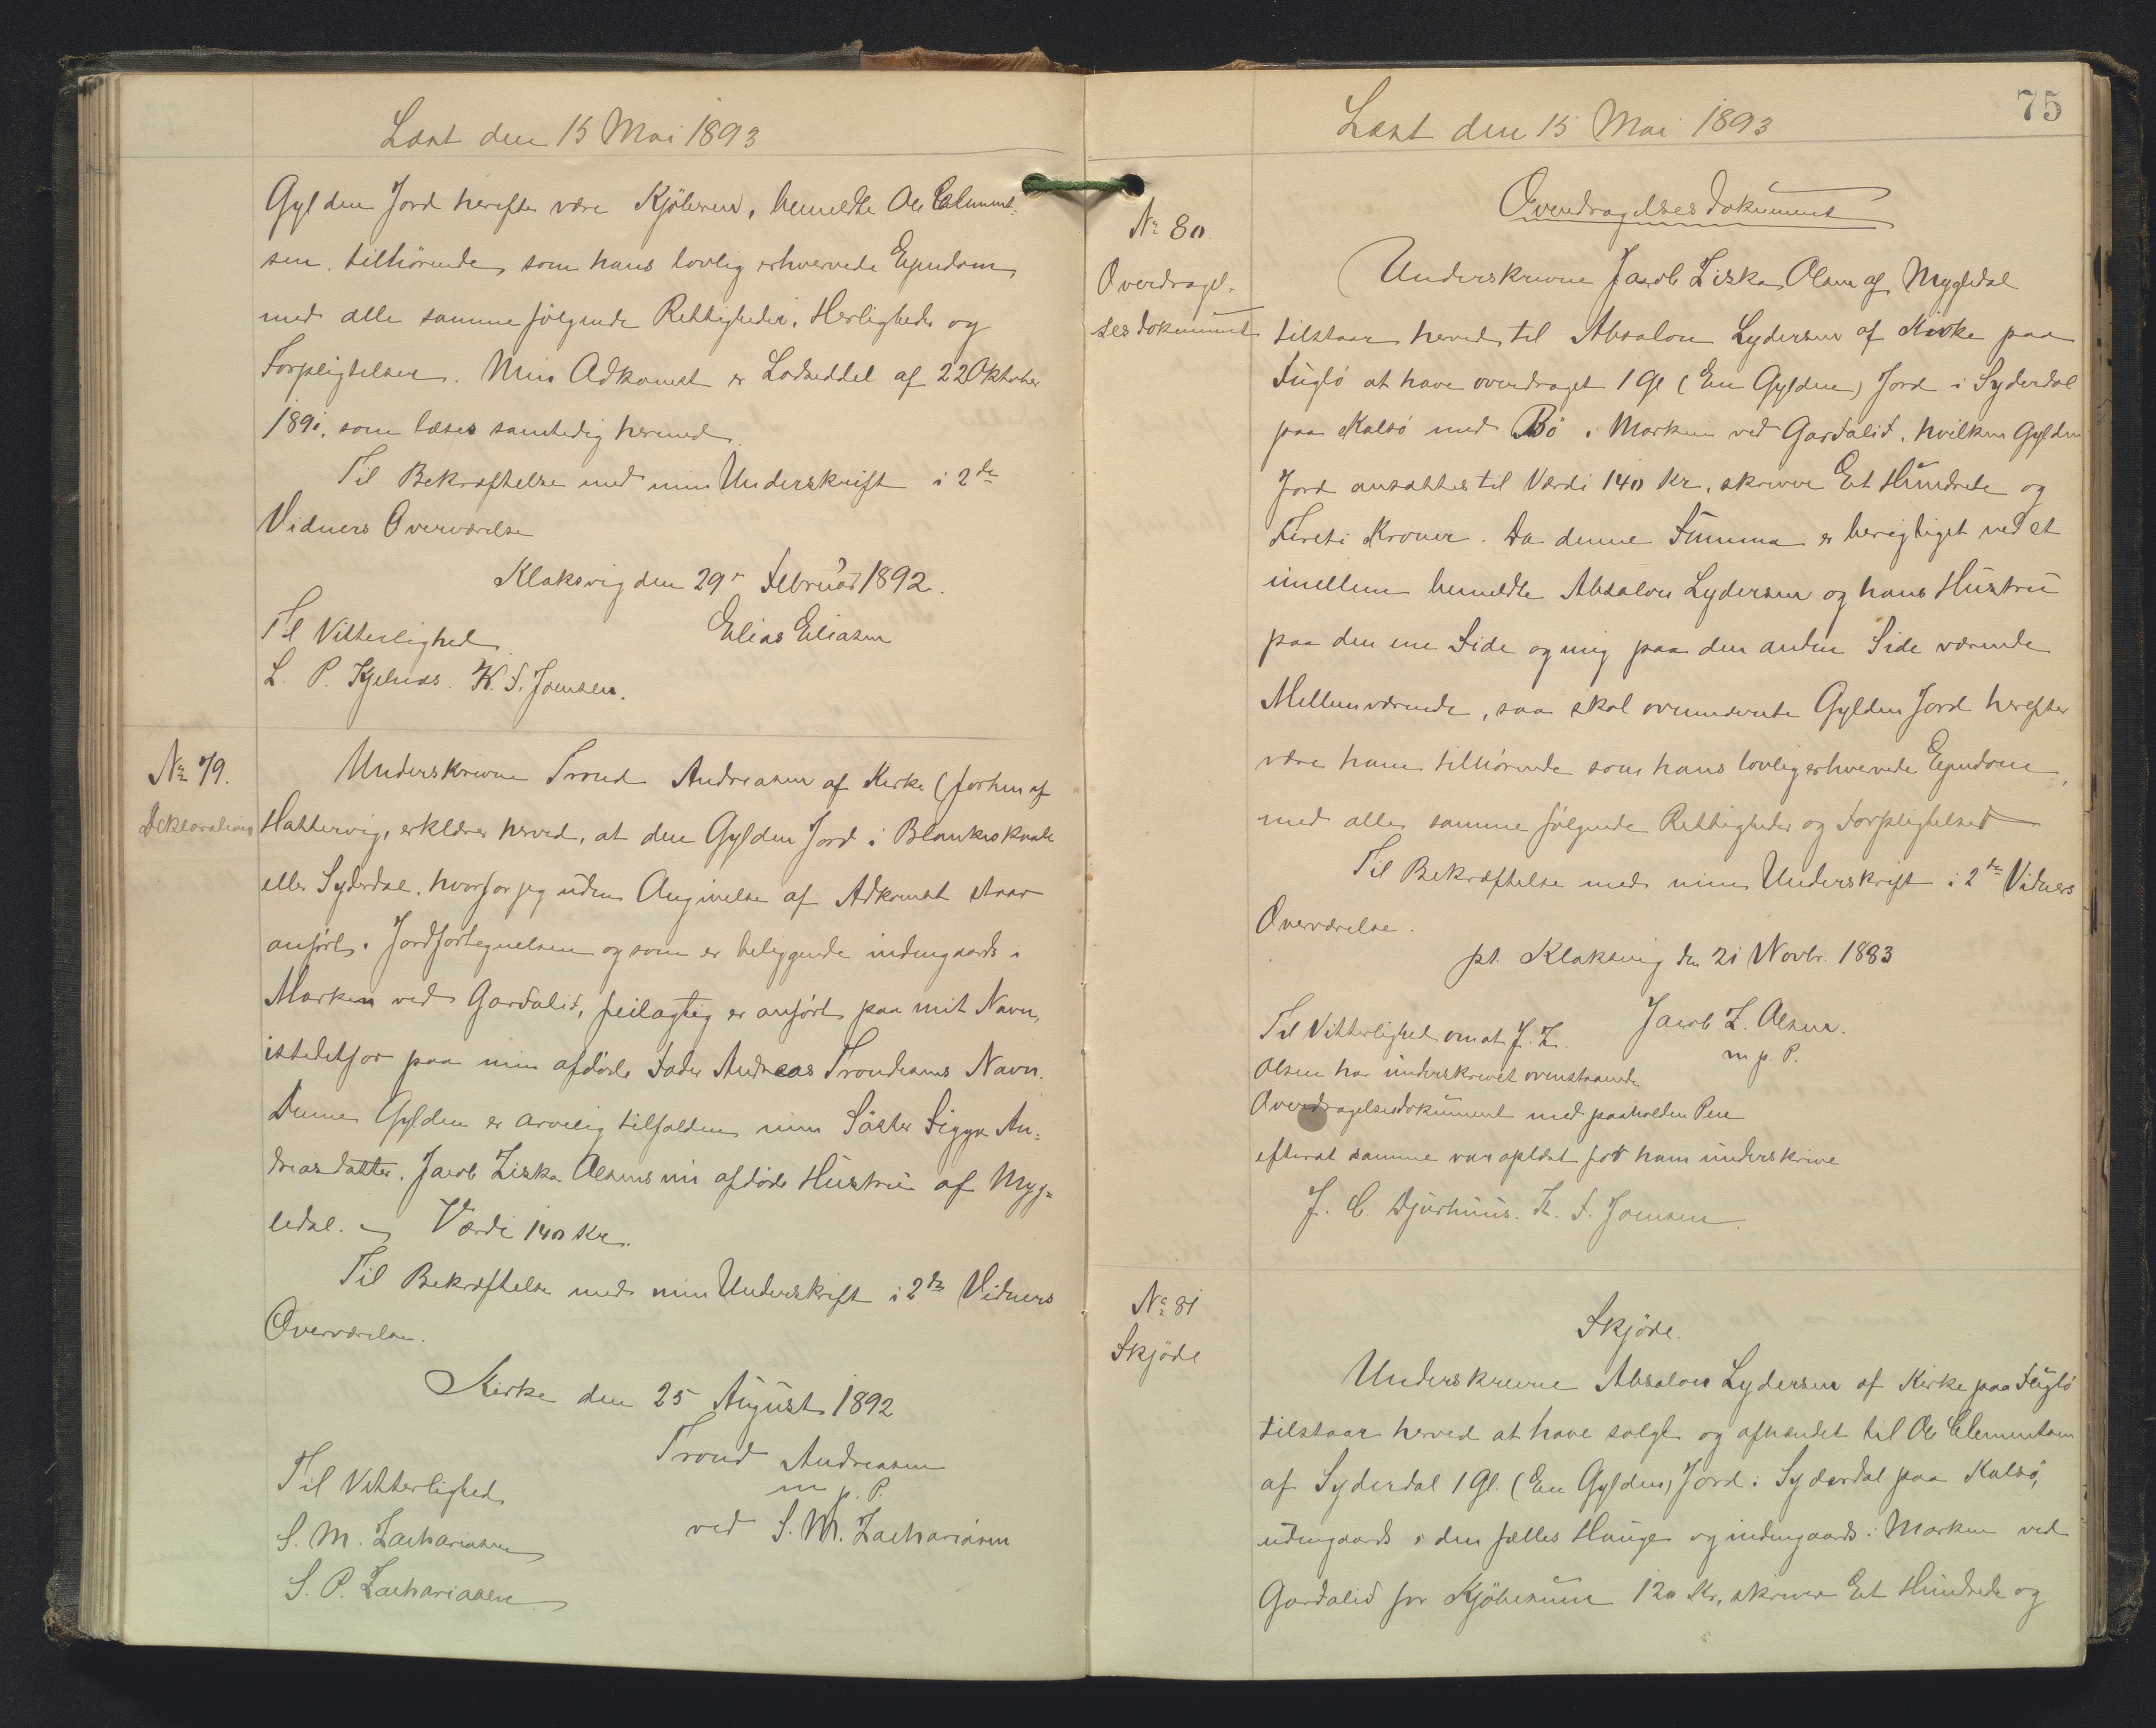 Læst den 15 Mai 1893
Gylden Jord herefter være Kjöberen, bemeldte Ole Clement-
sen, tilhörende, som hans lovlig erhvervede Ejendom,
med alle samme fölgende Rettigheder, Herligheder og
Forpligtelser. Min Adkomst er Lodseddel af 22 Oktober
1891, som læses samtidig hermed.
Til Bekræftelse med min Underskrift i 2de
Vidners Overværelse
Klaksvig den 29' Februar 1892.
Til Vitterlighed. Elias Eliasen
L. P. Kjelnæs. K. F. Joensen.
No 79.
Deklaration
Underskrevne Trond Andreasen af Kirke (forhen af
Hattervig, erklærer herved, at den Gylden Jord i Blankeskaale
eller Syderdal, hvorfor jeg uden Angivelse af Adkomst staar
anført i Jordfortegnelsen og som er beliggende indengaards i
Marken ved Gardalid, feilagtig er anført paa mit Navn,
istedetfor paa min afdöde Fader Andreas Trondsens Navn.
Denne Gylden er arvelig tilfalden min Söster Sigga An=
dreasdatter, Jacob Ziska Olsens nu afdöde Hustru af Myg=
ledal. Værdi 140 Kr.
Til Bekræftelse med min Underskrift i 2de Vidners
Overværelse.
Kirke den 25 August 1892
Trond Andreasen
m. p. P.
Til Vitterlighed
ved S. M. Zachariasen
S. M. Zachariasen
S. P. Zachariasen
75
Læst den 15 Mai 1893
No 80
Overdragel-
sesdokument
Overdragelsesdokument
Underskrevne Jacob Ziska Olsen af Mygledal
tilstaar herved til Absalon Lydersen af Kirke paa
Fuglö at have overdraget 1 Gl (En Gylden) Jord i Syderdal
paa Kalsö med Bö i Marken ved Gardalid, hvilken Gylden
Jord ansættes til Værdi 140 Kr, skriver Et Hundrede og
Fireti Kroner. Da denne Summa er berigtiget ved et
imellem bemeldte Absalon Lydersen og hans Hustru
paa den ene Side og mig paa den anden Side værende
Mellemværende, saa skal ovennævnte Gylden Jord herefter
være ham tilhörende som hans lovlig erhvervede Ejendom,
med alle samme fölgende Rettigheder og Forpligtelser
Til Bekræftelse med min Underskrift i 2de Vidners
Overværelse.
pt. Klaksvig den 21 Novbr. 1883
Jacob Z. Olsen.
m. p. P.
Til Vitterlighed om at J. Z.
Olsen har underskrevet ovenstaaende
Overdragelsesdokument med paaholden Pen
efterat samme var oplæst for ham underskrive
J. C. Djurhuus. K. F. Joensen.
No 81
Skjöde
Skjöde.
Underskrevne Absalon Lydersen af Kirke paa Fuglö
tilstaar herved at have solgt og afhændet til Ole Clementsen
af Syderdal 1 Gl. (En Gylden) Jord i Syderdal paa Kalsö,
udengaards i den fælles Hauge og indengaards i Marken ved
Gardalid for Kjöbesum 120 Kr, skriver Et Hundrede og